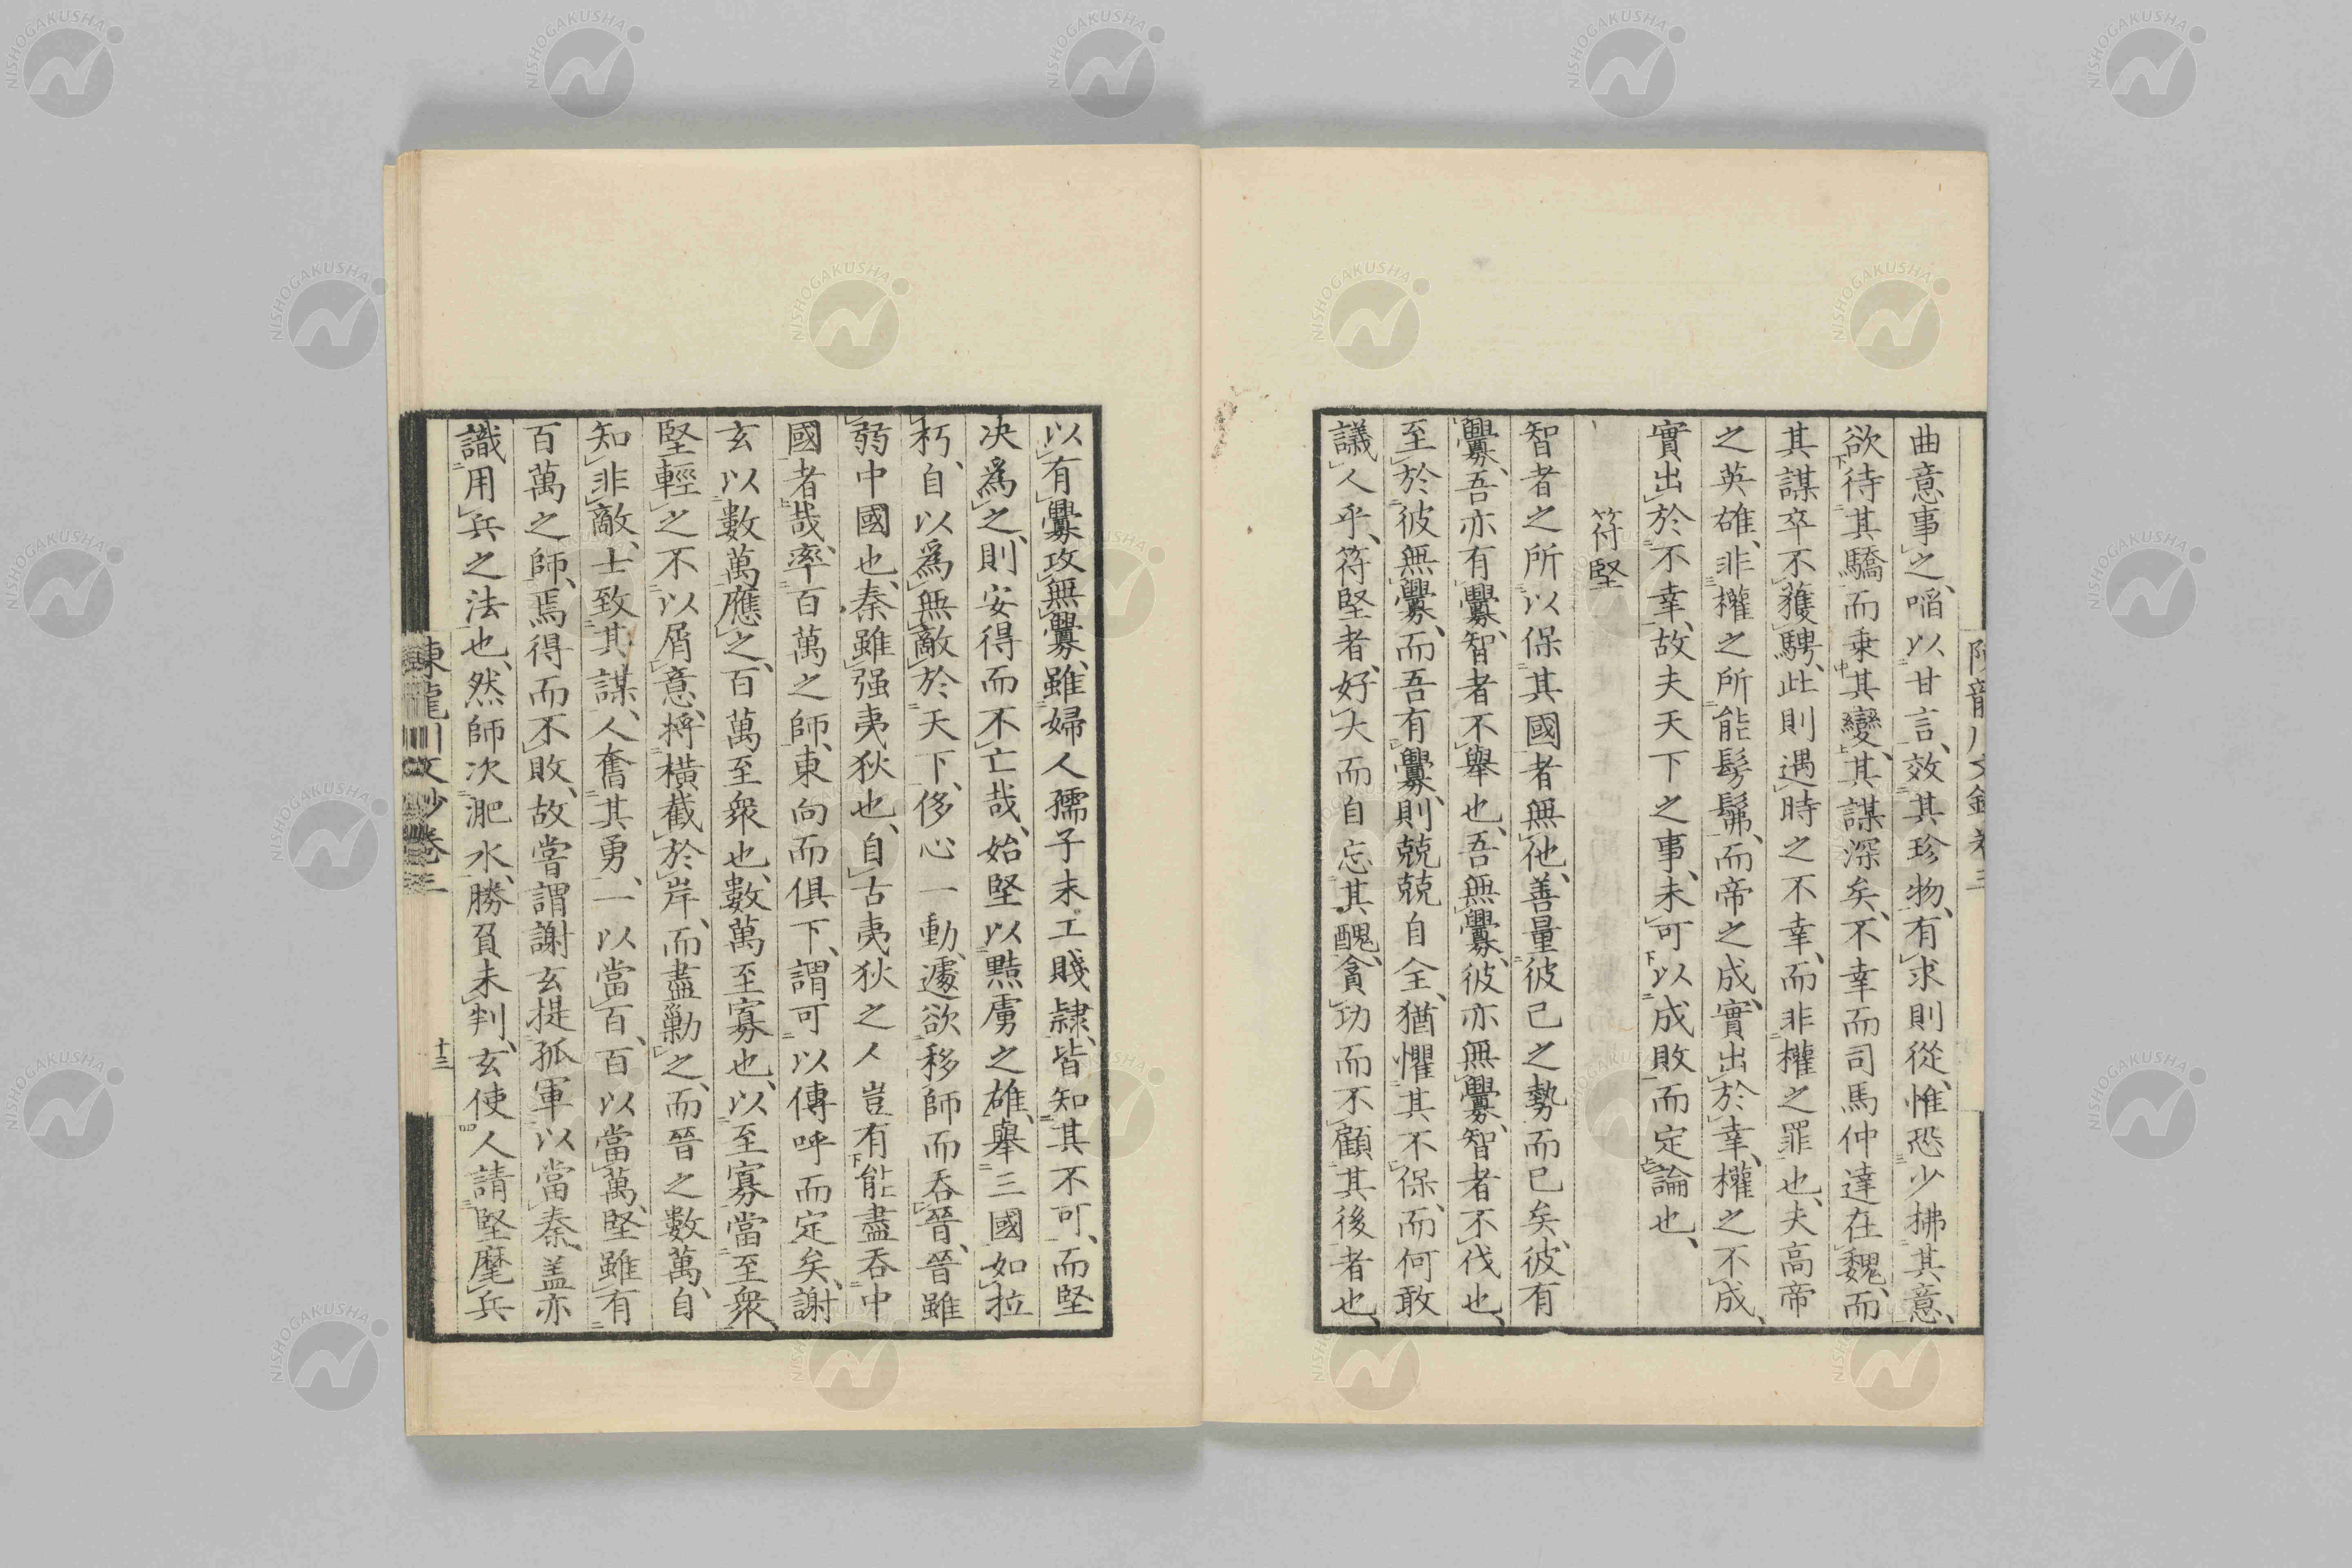 曲意事之、啗以甘言、效其珍物、有求則從、惟恐少拂其意、
欲待其驕而乗其變、其謀深矣、不幸而司馬仲達在魏、而
其謀卒不獲騁、此則遇時之不幸、而非權之罪也、夫高帝
之英雄、非權之所能髣髴、而帝之成、實出於幸、權之不成、
實出於不幸、故夫天下之事、未可以成敗而定論也、
符堅
智者之所以保其國者無他、善量彼己之勢而已矣、彼有
釁、吾亦有釁、智者不舉也、吾無釁、彼亦無釁、智者不伐也、
至於彼無釁、而吾有釁、則兢兢自全、猶懼其不保、而何敢
議人乎、符堅者、好大而自忘其醜、貪功而不顧其後者也、
以有釁攻無釁、雖婦人孺子末工賤隷、皆知其不可、而堅
决爲之、則安得而不亡哉、始堅以黠虜之雄、舉三國如拉
朽、自以爲無敵於天下、侈心一動、遽欲移師而呑晉、晉雖
弱中國也、秦雖强夷狄也、自古夷狄之人豈有能盡呑中
國者哉、率百萬之師、東向而俱下、謂可以傳呼而定矣、謝
玄以數萬應之、百萬至衆也、數萬至寡也、以至寡當至衆、
堅輕之不以屑意、將横截於岸、而盡勦之、而晉之數萬、自
知非敵、士致其謀、人奮其勇、一以當百、百以當萬、堅雖有
百萬之師、焉得而不敗、故嘗謂謝玄提孤軍以當秦、盖亦
識用兵之法也、然師次淝水、勝負未判、玄使人請堅麾兵
陳龍川文鈔卷三
十三